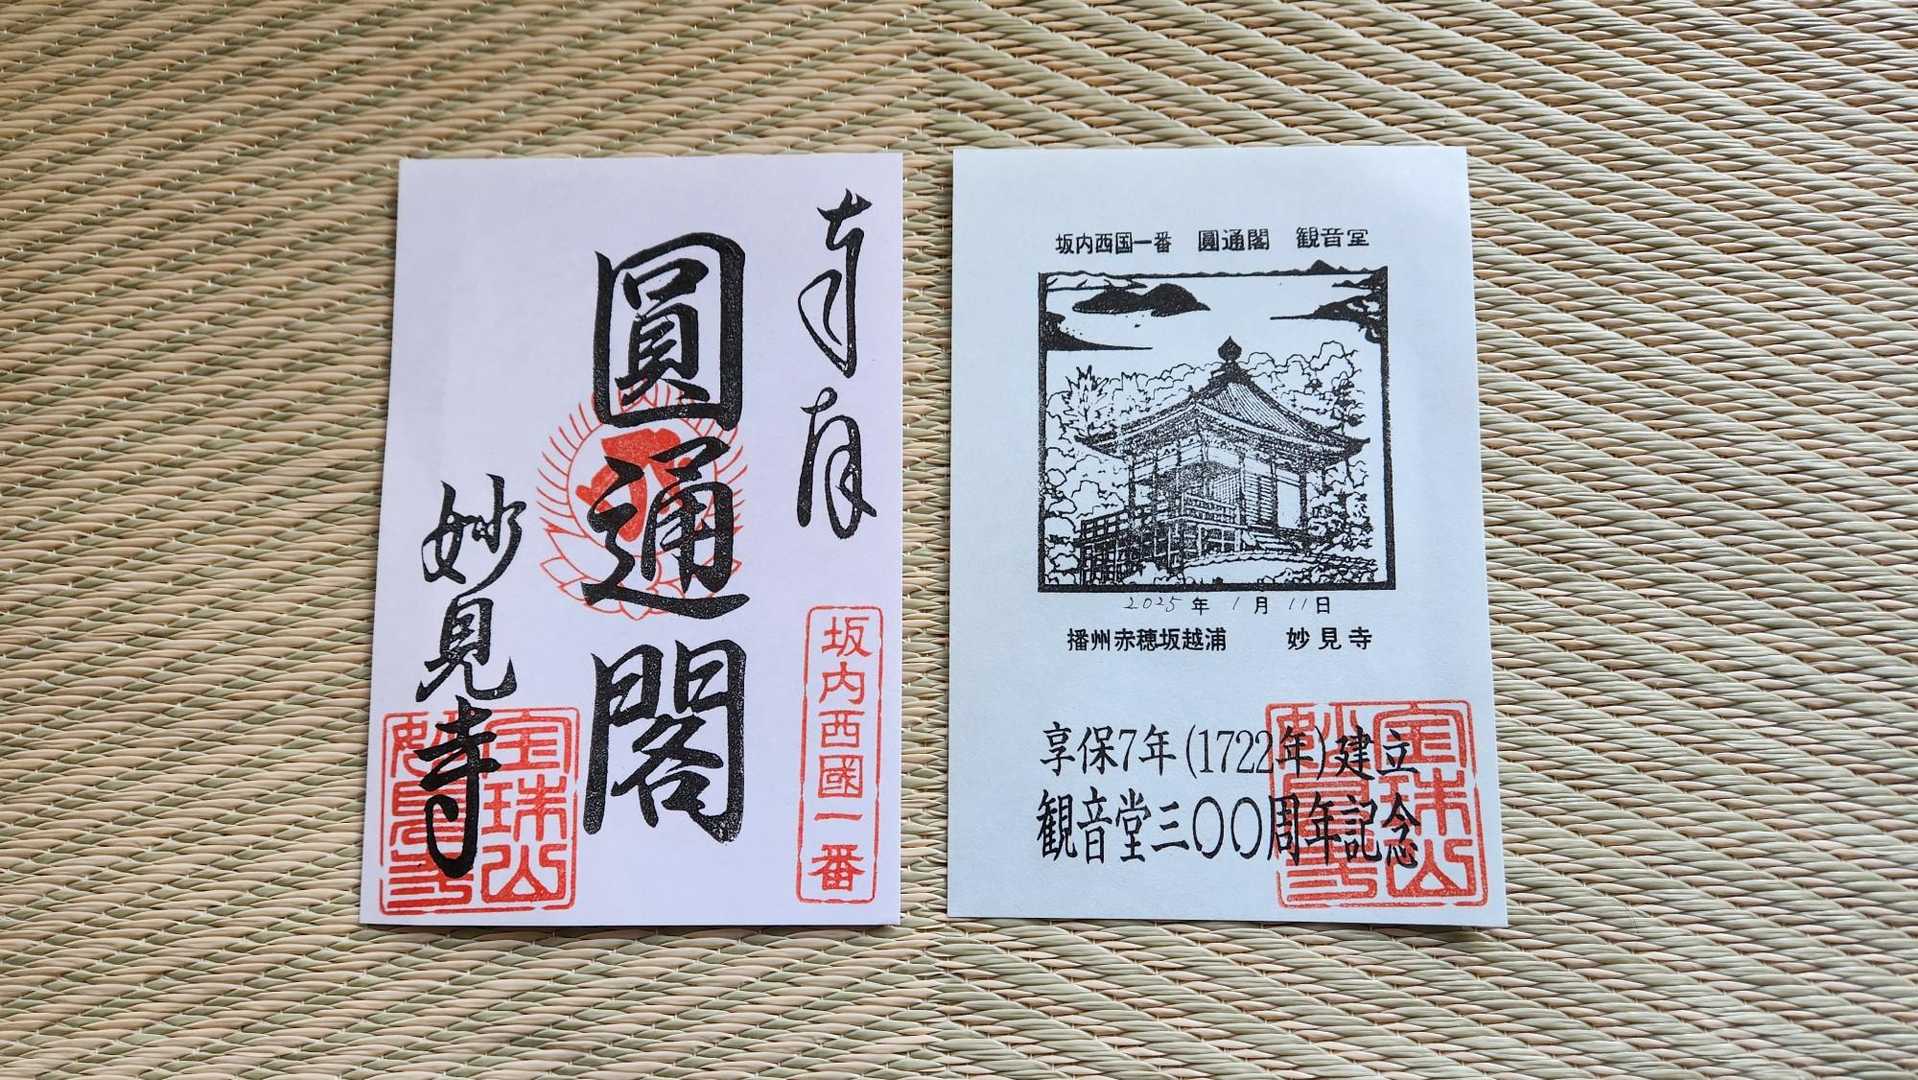 奉拝
圓通閣
妙見寺
坂内西國一番
宝珠山
妙見寺
坂内西国一番 圓通閣 観音堂
2025年1月11日
播州赤穂坂越浦 妙見寺
享保7年(1722年)建立
観音堂三〇〇周年記念
宝珠山
妙見寺